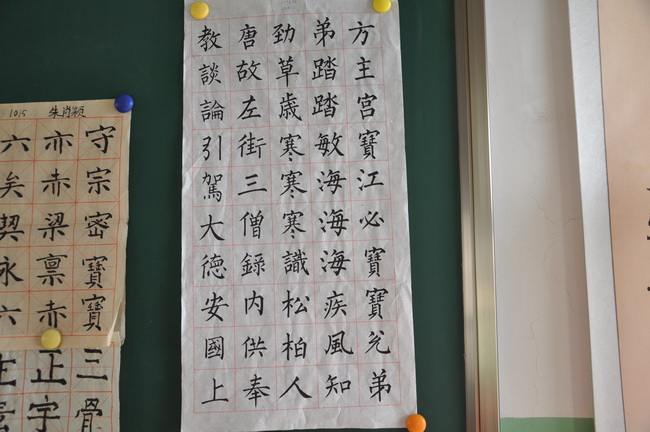 方主宮寶江必寶寶兊弟
弟踏踏敏海海海疾風知
劲草歳寒寒寒識松柏人
唐故左街三僧録内供奉
教談論引駕大德安國上
1015 朱肖颖
守宗密寶寶
亦赤梁禀赤
六矣契永六
三骨
正宇